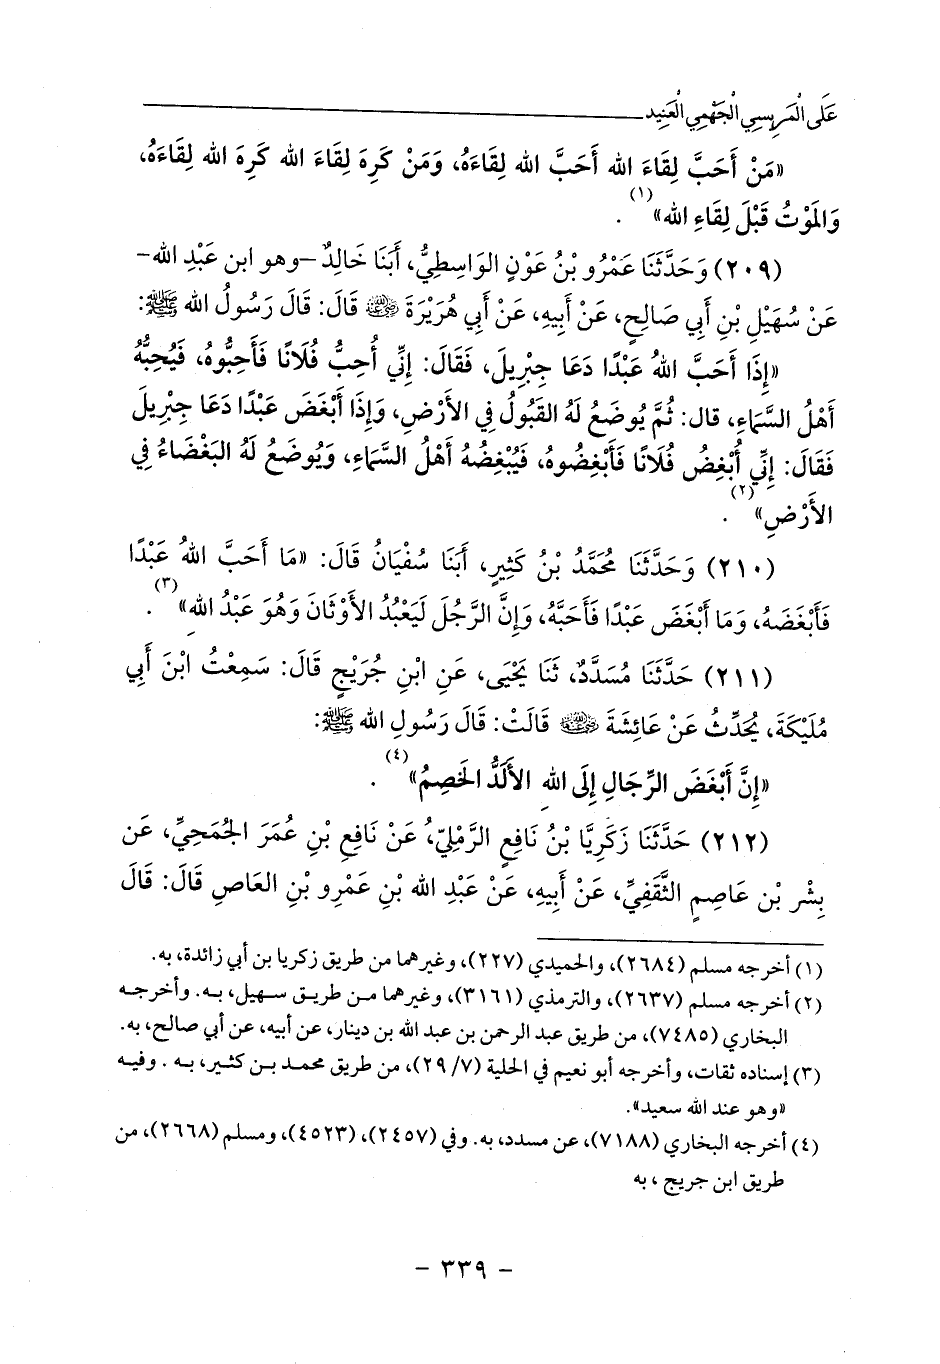 عَلَى الْمَرِيسِي الْجَهْمِي الْعَنِيد
«مَنْ أَحَبَّ لِقَاءَ الله أَحَبَّ الله لِقَاءَهُ، وَمَنْ كَرِهَ لِقَاءَ الله كَرِهَ الله لِقَاءَهُ،
وَالمَوْتُ قَبْلَ لِقَاءِ الله»(١) .
(٢٠٩) وَحَدَّثَنَا عَمْرُو بْنُ عَوْنٍ الوَاسِطِيُّ، أَبَنَا خَالِدٌ -وهو ابن عَبْدِ الله-
عَنْ سُهَيْلِ بْنِ أَبِي صَالِحٍ، عَنْ أَبِيهِ، عَنْ أَبِي هُرَيْرَةَ ﵁ قَالَ: قَالَ رَسُولُ الله ﷺ:
«إِذَا أَحَبَّ اللهُ عَبْدًا دَعَا جِبْرِيلَ، فَقَالَ: إِنِّي أُحِبُّ فُلَانًا فَأَحِبُّوهُ، فَيُحِبُّهُ
أَهْلُ السَّمَاءِ، قال: ثُمَّ يُوضَعُ لَهُ القَبُولُ فِي الأَرْضِ، وَإِذَا أَبْغَضَ عَبْدًا دَعَا جِبْرِيلَ
فَقَالَ: إِنِّي أُبْغِضُ فُلَانًا فَأَبْغِضُوهُ، فَيُبْغِضُهُ أَهْلُ السَّمَاءِ، وَيُوضَعُ لَهُ البَغْضَاءُ فِي
الأَرْضِ»(٢) .
(٢١٠) وَحَدَّثَنَا مُحَمَّدُ بْنُ كَثِيرٍ، أَبَنَا سُفْيَانُ قَالَ: «مَا أَحَبَّ اللهُ عَبْدًا
فَأَبْغَضَهُ، وَمَا أَبْغَضَ عَبْدًا فَأَحَبَّهُ، وَإِنَّ الرَّجُلَ لَيَعْبُدُ الأَوْثَانَ وَهُوَ عَبْدُ الله»(٣) .
(٢١١) حَدَّثَنَا مُسَدَّدٌ، ثَنَا يَحْيَى، عَنِ ابْنِ جُرَيْجٍ قَالَ: سَمِعْتُ ابْنَ أَبِي
مُلَيْكَةَ، يُحَدِّثُ عَنْ عَائِشَةَ ﵂ قَالَتْ: قَالَ رَسُولِ الله ﷺ:
«إِنَّ أَبْغَضَ الرِّجَالِ إِلَى اللهِ الأَلَدُّ الخَصِمُ»(٤) .
(٢١٢) حَدَّثَنَا زَكَرِيَّا بْنُ نَافِعٍ الرَّمْلِيُّ، عَنْ نَافِعِ بْنِ عُمَرَ الجُمَحِيِّ، عَن
بِشْرِ بْنِ عَاصِمٍ الثَّقَفِيِّ، عَنْ أَبِيهِ، عَنْ عَبْدِ الله بْنِ عَمْرِو بْنِ العَاصِ قَالَ: قَالَ
(١) أخرجه مسلم (٢٦٨٤)، والحميدي (٢٢٧)، وغيرهما من طريق زكريا بن أبي زائدة، به.
(٢) أخرجه مسلم (٢٦٣٧)، والترمذي (٣١٦١)، وغيرهما من طريق سهيل، به. وأخرجه
البخاري (٧٤٨٥)، من طريق عبد الرحمن بن عبد الله بن دينار، عن أبيه، عن أبي صالح، به.
(٣) إسناده ثقات، وأخرجه أبو نعيم في الحلية (٢٩/٧)، من طريق محمد بن كثير، به . وفيه
«وهو عند الله سعيد».
(٤) أخرجه البخاري (٧١٨٨)، عن مسدد، به. وفي (٢٤٥٧)، (٤٥٢٣)، ومسلم (٢٦٦٨)، من
طريق ابن جريج ، به
- ٣٣٩ -